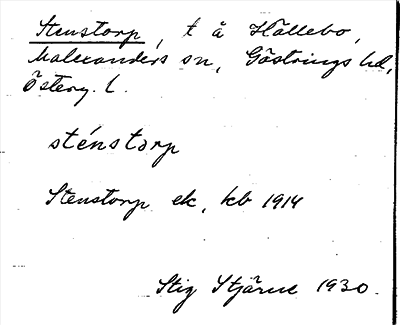 Stenstorp, t å Hällebo,
Malexanders sn, Göstrings hd,
Österg. l.
sténstorp
Stenstorp ek, kb 1914
Stig Stjärne 1930.